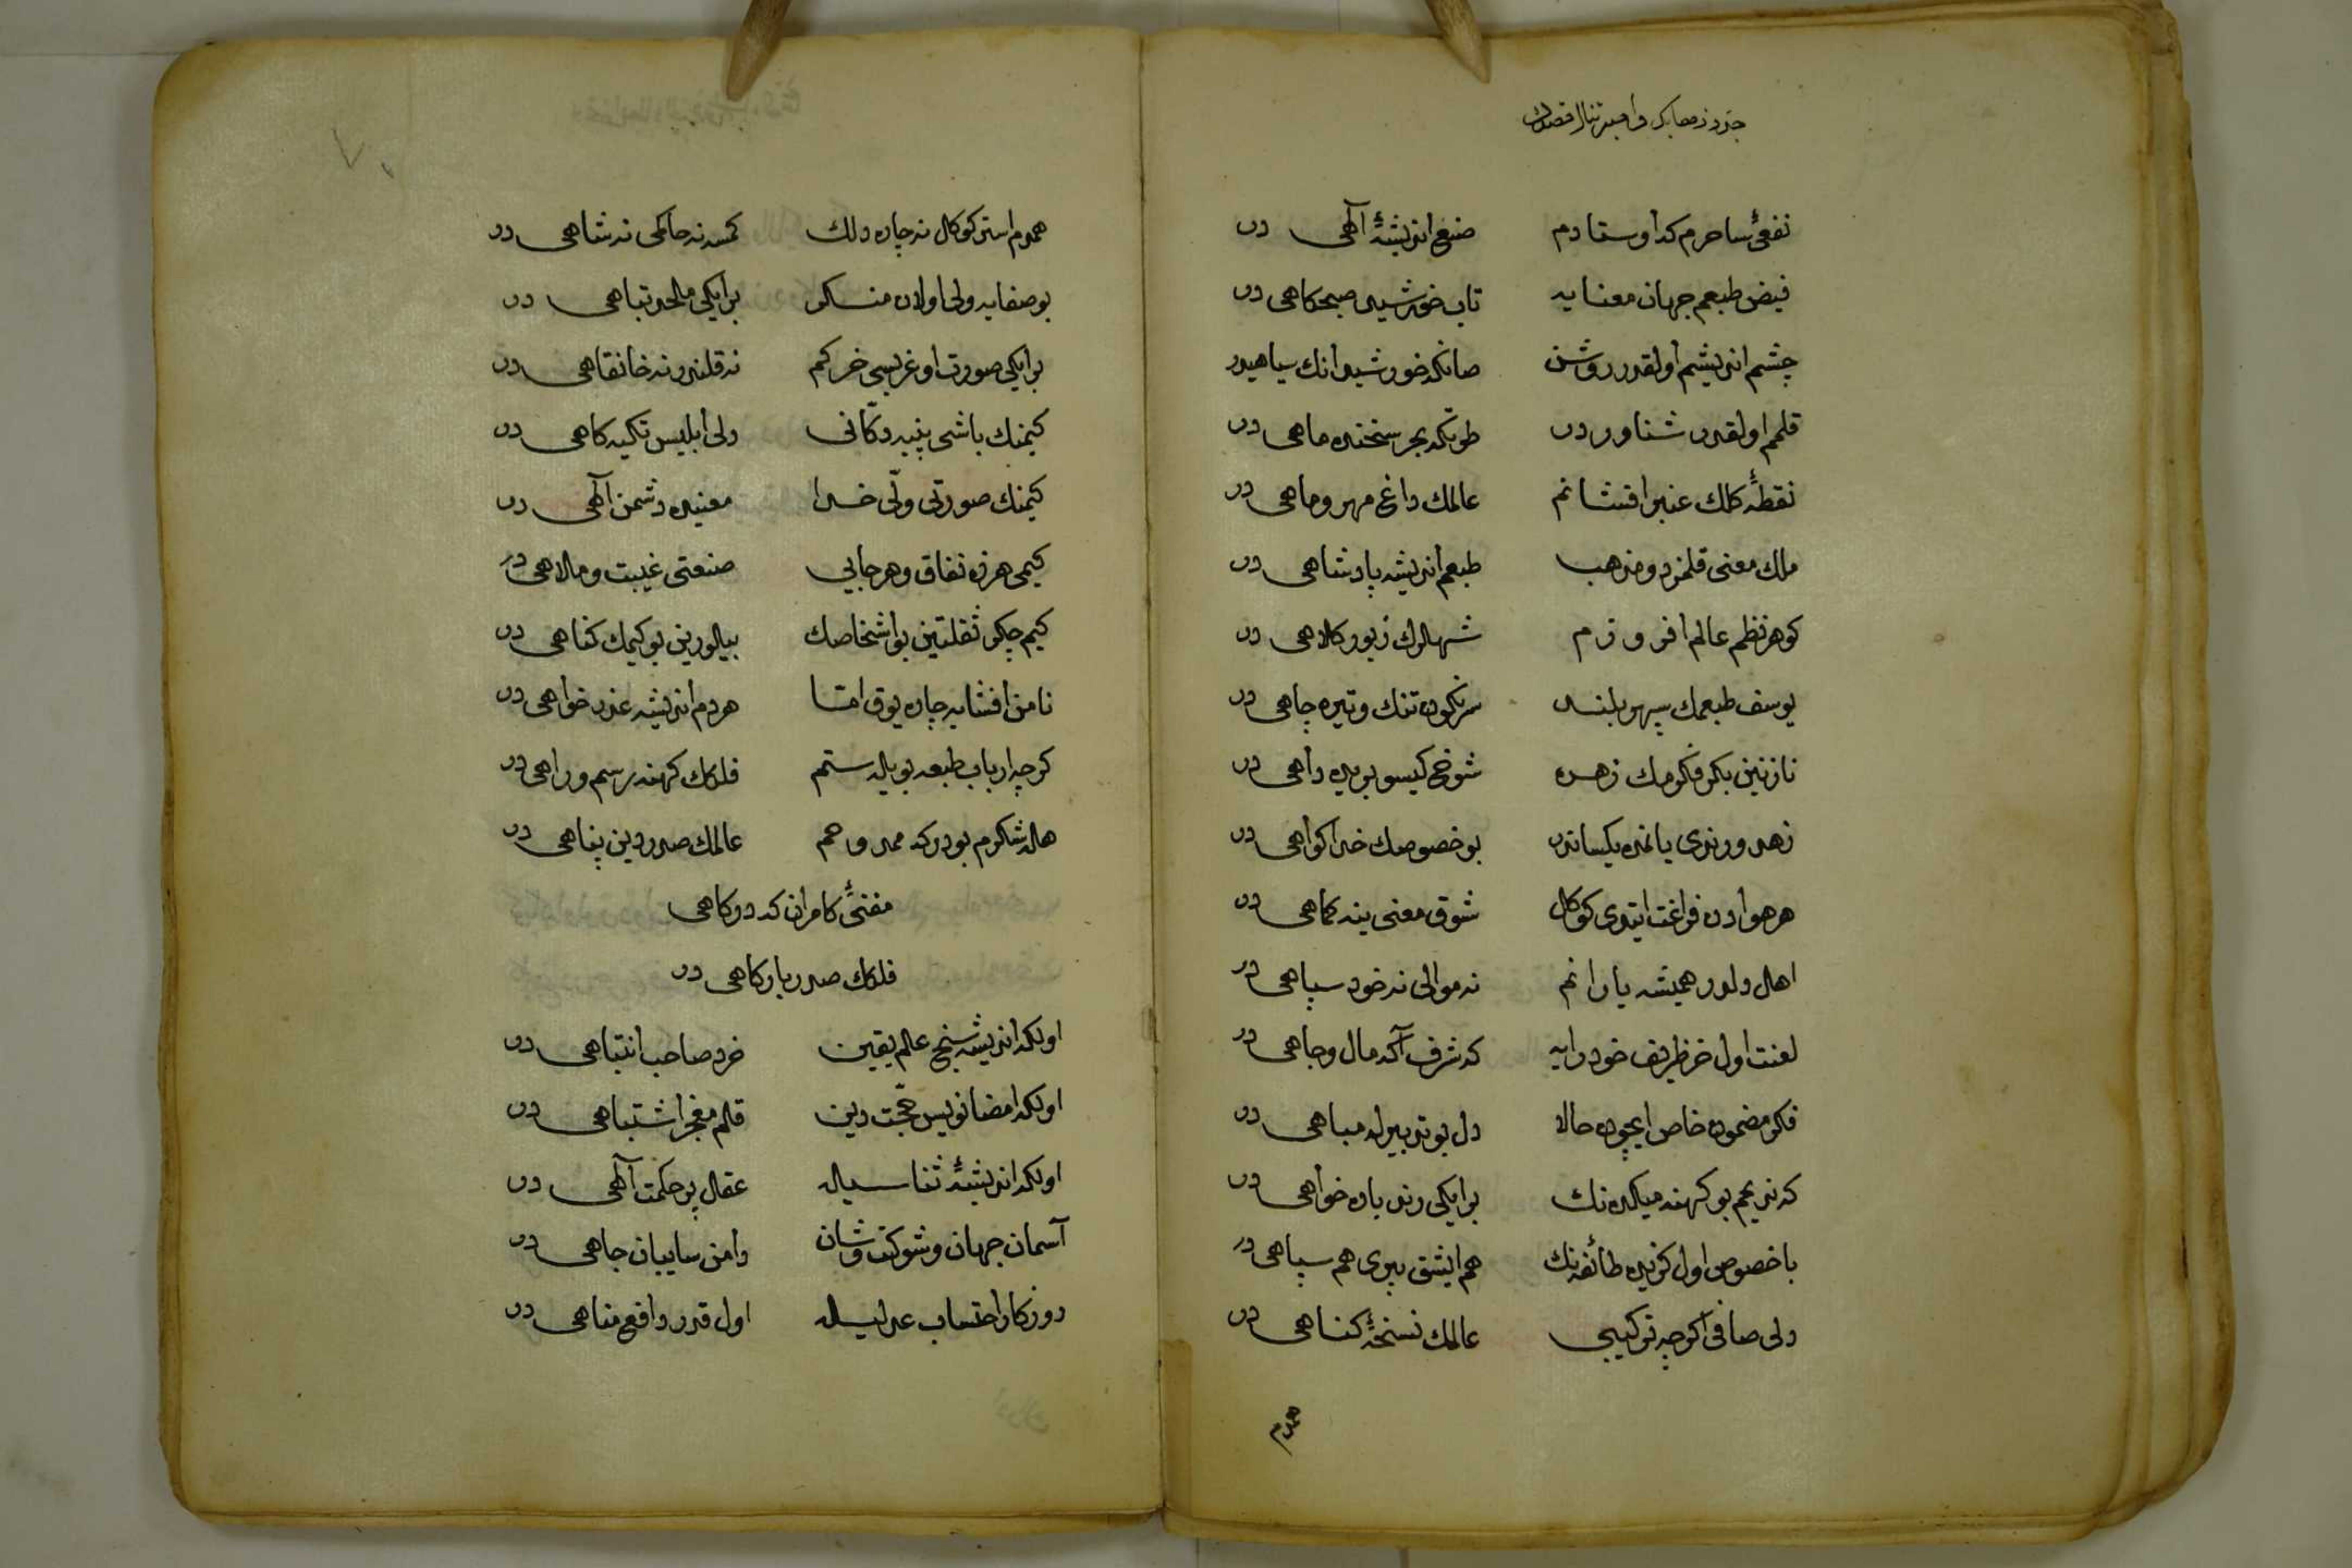 نفعئ ساحرم كه اوستادم صنع انديشۀ آلهى در
فيض طبعم جهان معنايه تاب خورشيد صبحكاهى در
چشم انديشم اولقدر روشن صانكه خورشيد انك سياهيدر
قلمم اولقدر شناور در طوتكه بحر سخنده ماهى در
نقطۀ كلك عنبر افشانم عالمك داغ مهر و ماهى در
ملك معنى قلمرو و مذهب طبعم انديشه پادشاهى در
كوهر نظم عالم افروزم شهلرك زيور كلاهى در
يوسف طبعمك سپهر بلند سرنكون تنك و تيره چاهى در
نازنين بكر فكرمك زهره شوخ كيسو بريده داهى در
زهد و رندى يانمده يكساندر بو خصوصك خدا كواهى در
هر هوادن فراغت ايتدى كوكل شوق معنى ينه كماهى در
اهل دلدر هميشه يارانم نه موالى نه خود سپاهى در
لعنت اول خر ظريف خودرايه كه شرف آكه مال و جاهى در
فكر مضمون خاص ايچون حالا دل بو تدبيرله مباهى در
كه نديمم بو كهنه ميكده نك بر ايكى رند باده خواهى در
باخصوص اول كزيده طائفه نك هم ايشق پيرى هم سپاهى در
ولى صافى اكرچه تركيبى عالمك نسخۀ كناهى در
همدم
همدم استر كوكل نه چاره دلك كمسه نه حاكمى نه شاهى در
بو صفايه ولى اولان منكر بر ايكى ملحد تباهى در
بر ايكى صورت اوغريسى خر كم نه قلندر نه خانقاهى در
كيمنك باشى پنبه دكّانى ولى ابليس تكيه كاهى در
كيمنك صورتى ولىّ خدا معنيده دشمن آلهى در
كيمى هرزه نفاق و هرجايى صنعتى غيبت و ملاهى در
كيم چكر ثقلتين بو اشخاصك بيلورين بو كيمك كناهى در
نامن افشايه چاره يوق امّا هردم انديشه عذر خواهى در
كرچه ارباب طبعه بويله ستم فلكك كهنه رسم و راهى در
هله شكرم بودر كه ممدوحم عالمك صدر دين پناهى در
مفتئ كامران كه دركاهى
فلكك صدر باركاهى در
اولكه انديشه سنج عالم يقين خرد صاحب انتباهى در
اولكه امضا نويس حجّت دين قلم معجز اشتباهى در
اولكه انديشۀ ثناسيله عقل پر حكمت آلهى در
آسمان جهان و شوكت و شان دامن سايبان جاهى در
روزكار احتساب عدليله اول قدر واقع مناهى در